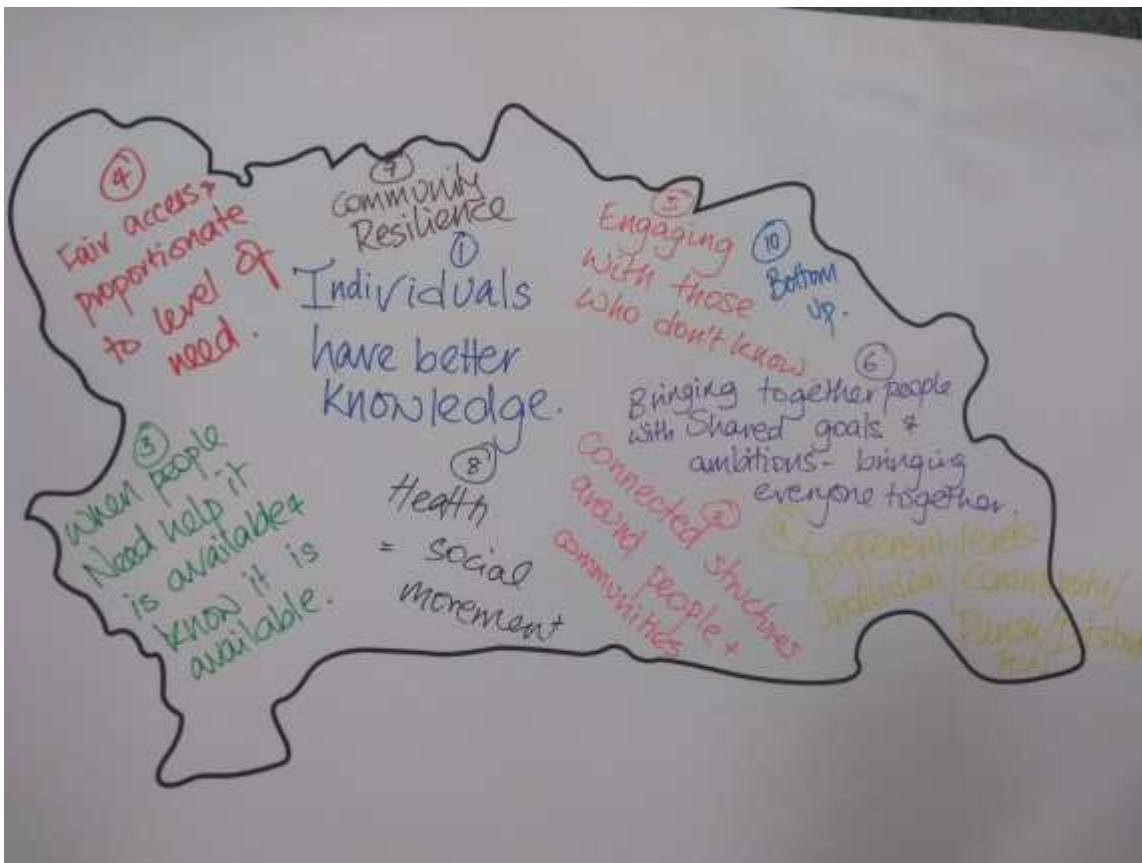 ④
Fair access +
proportionate
to level of
need.
⑦
Community
Resilience
①
Individuals
have better
knowledge.
⑤
Engaging
with those
who don't know
⑩
Bottom
up.
⑥
Bringing together people
with Shared goals +
ambitions - bringing
everyone together.
③
When people
Need help it
is available +
know it is
available.
⑧
Health
= social
movement
②
Connected structures
around people +
communities
⑨
Different levels
Individual / Community /
Parish / District